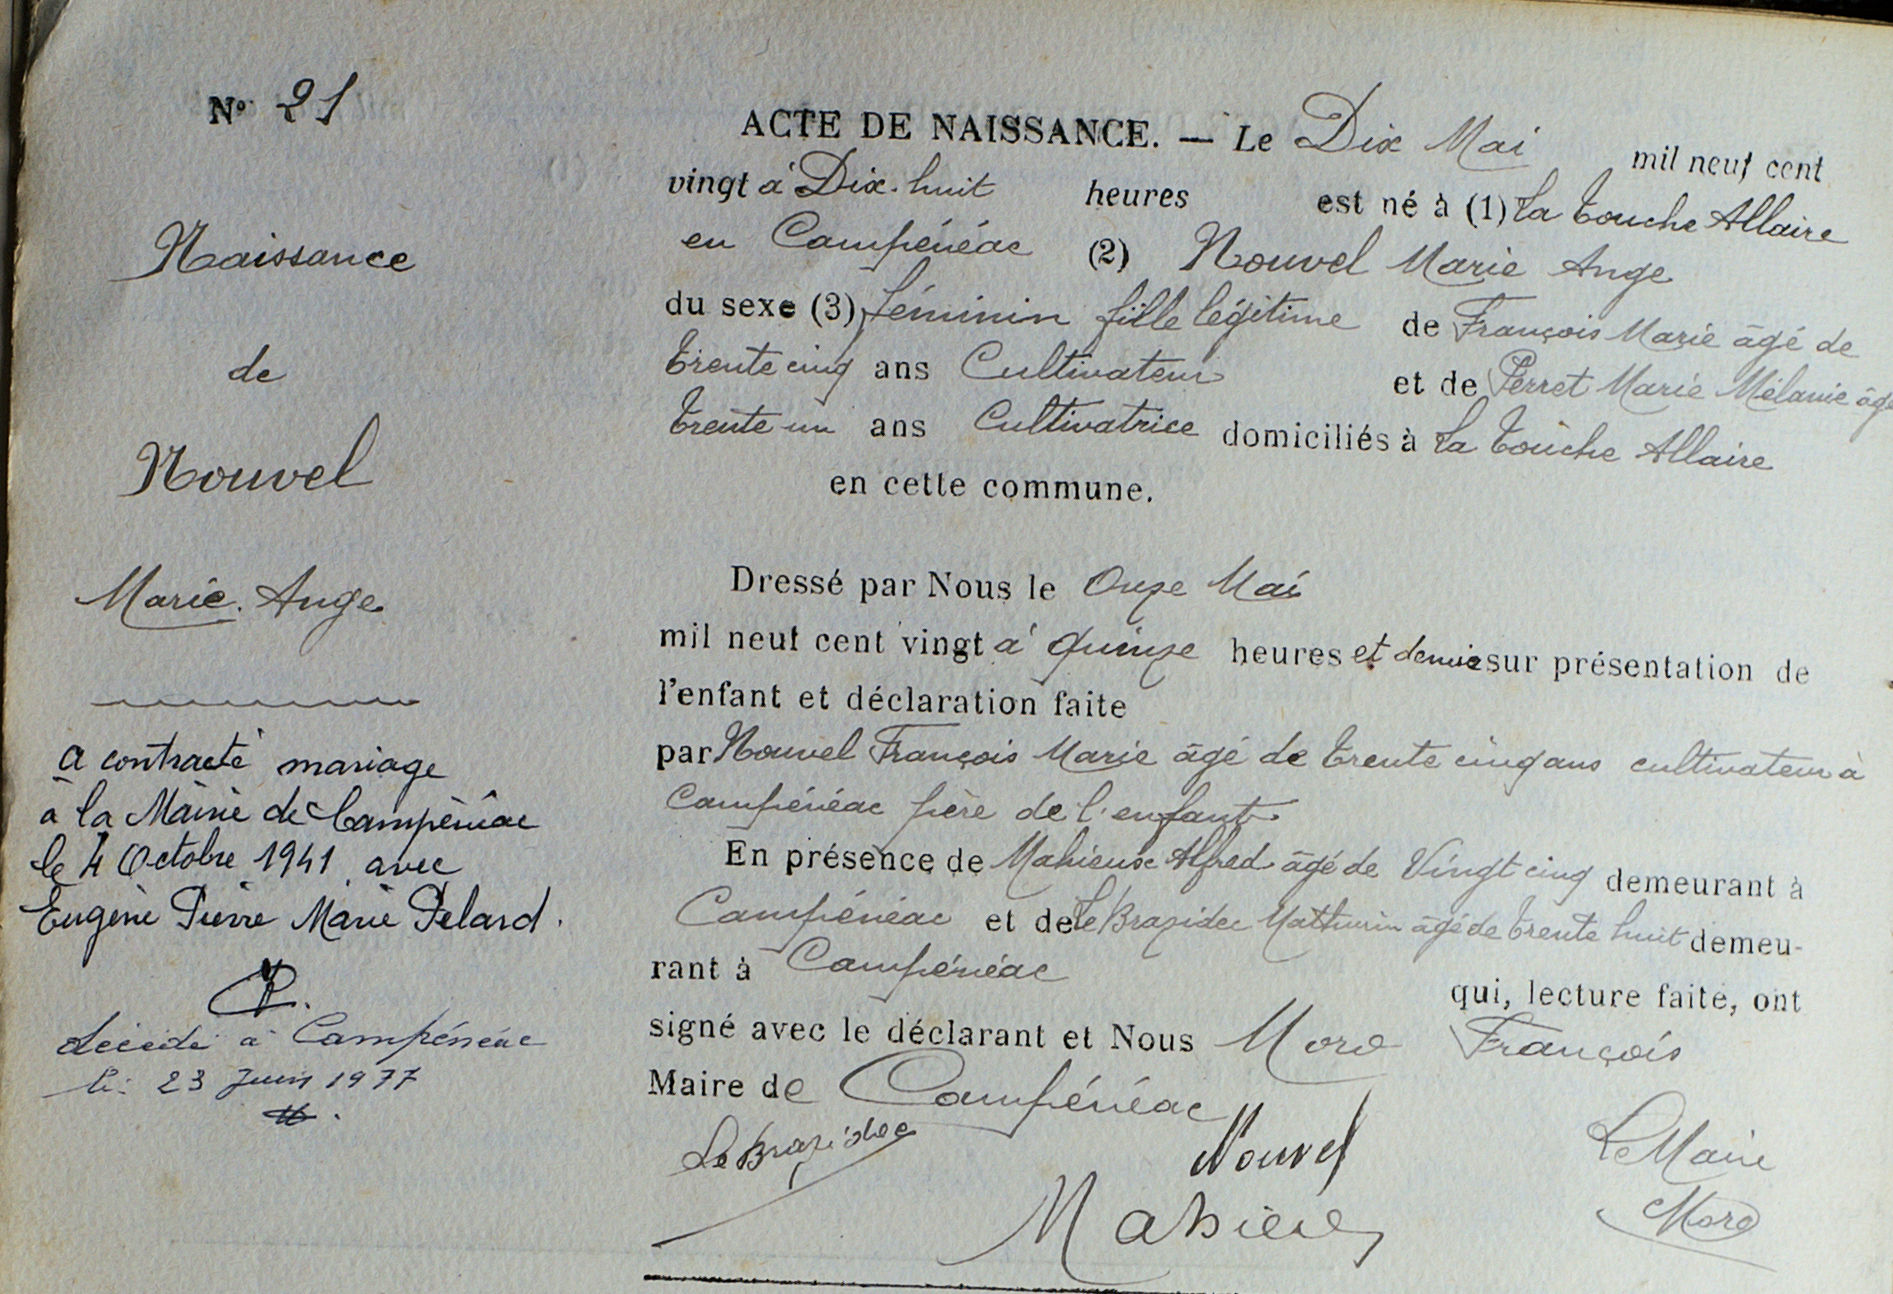 N° 21
Naissance
de
Nouvel
Marie. Ange
a contracté mariage
à la Mairie de Campénéac
le 4 Octobre 1941 avec
Eugène Pierre Marie Pelard.
décédé à Campénéac
le: 23 Juin 1977
ACTE DE NAISSANCE. — Le Dix Mai mil neuf cent
vingt à Dix-huit heures est né à (1) La Touche Allaire
en Campénéac (2) Nouvel Marie Ange
du sexe (3) féminin fille légitime de François Marie âgé de
trente cinq ans Cultivateur et de Perret Marie Mélanie âgé
trente un ans Cultivatrice domiciliés à La Touche Allaire
en cette commune.
Dressé par Nous le Onze Mai
mil neuf cent vingt à quinze heures et demie sur présentation de
l'enfant et déclaration faite
par Nouvel François Marie âgé de trente cinq ans cultivateur à
Campénéac père de l'enfant
En présence de Mahieux Alfred âgé de Vingt cinq demeurant à
Campénéac et de Le Brazidec Mathurin âgé de trente huit demeu-
rant à Campénéac qui, lecture faite, ont
signé avec le déclarant et Nous Moro François
Maire de Campénéac
Le Brazidec Nouvel Le Maire
Mahieux Moro